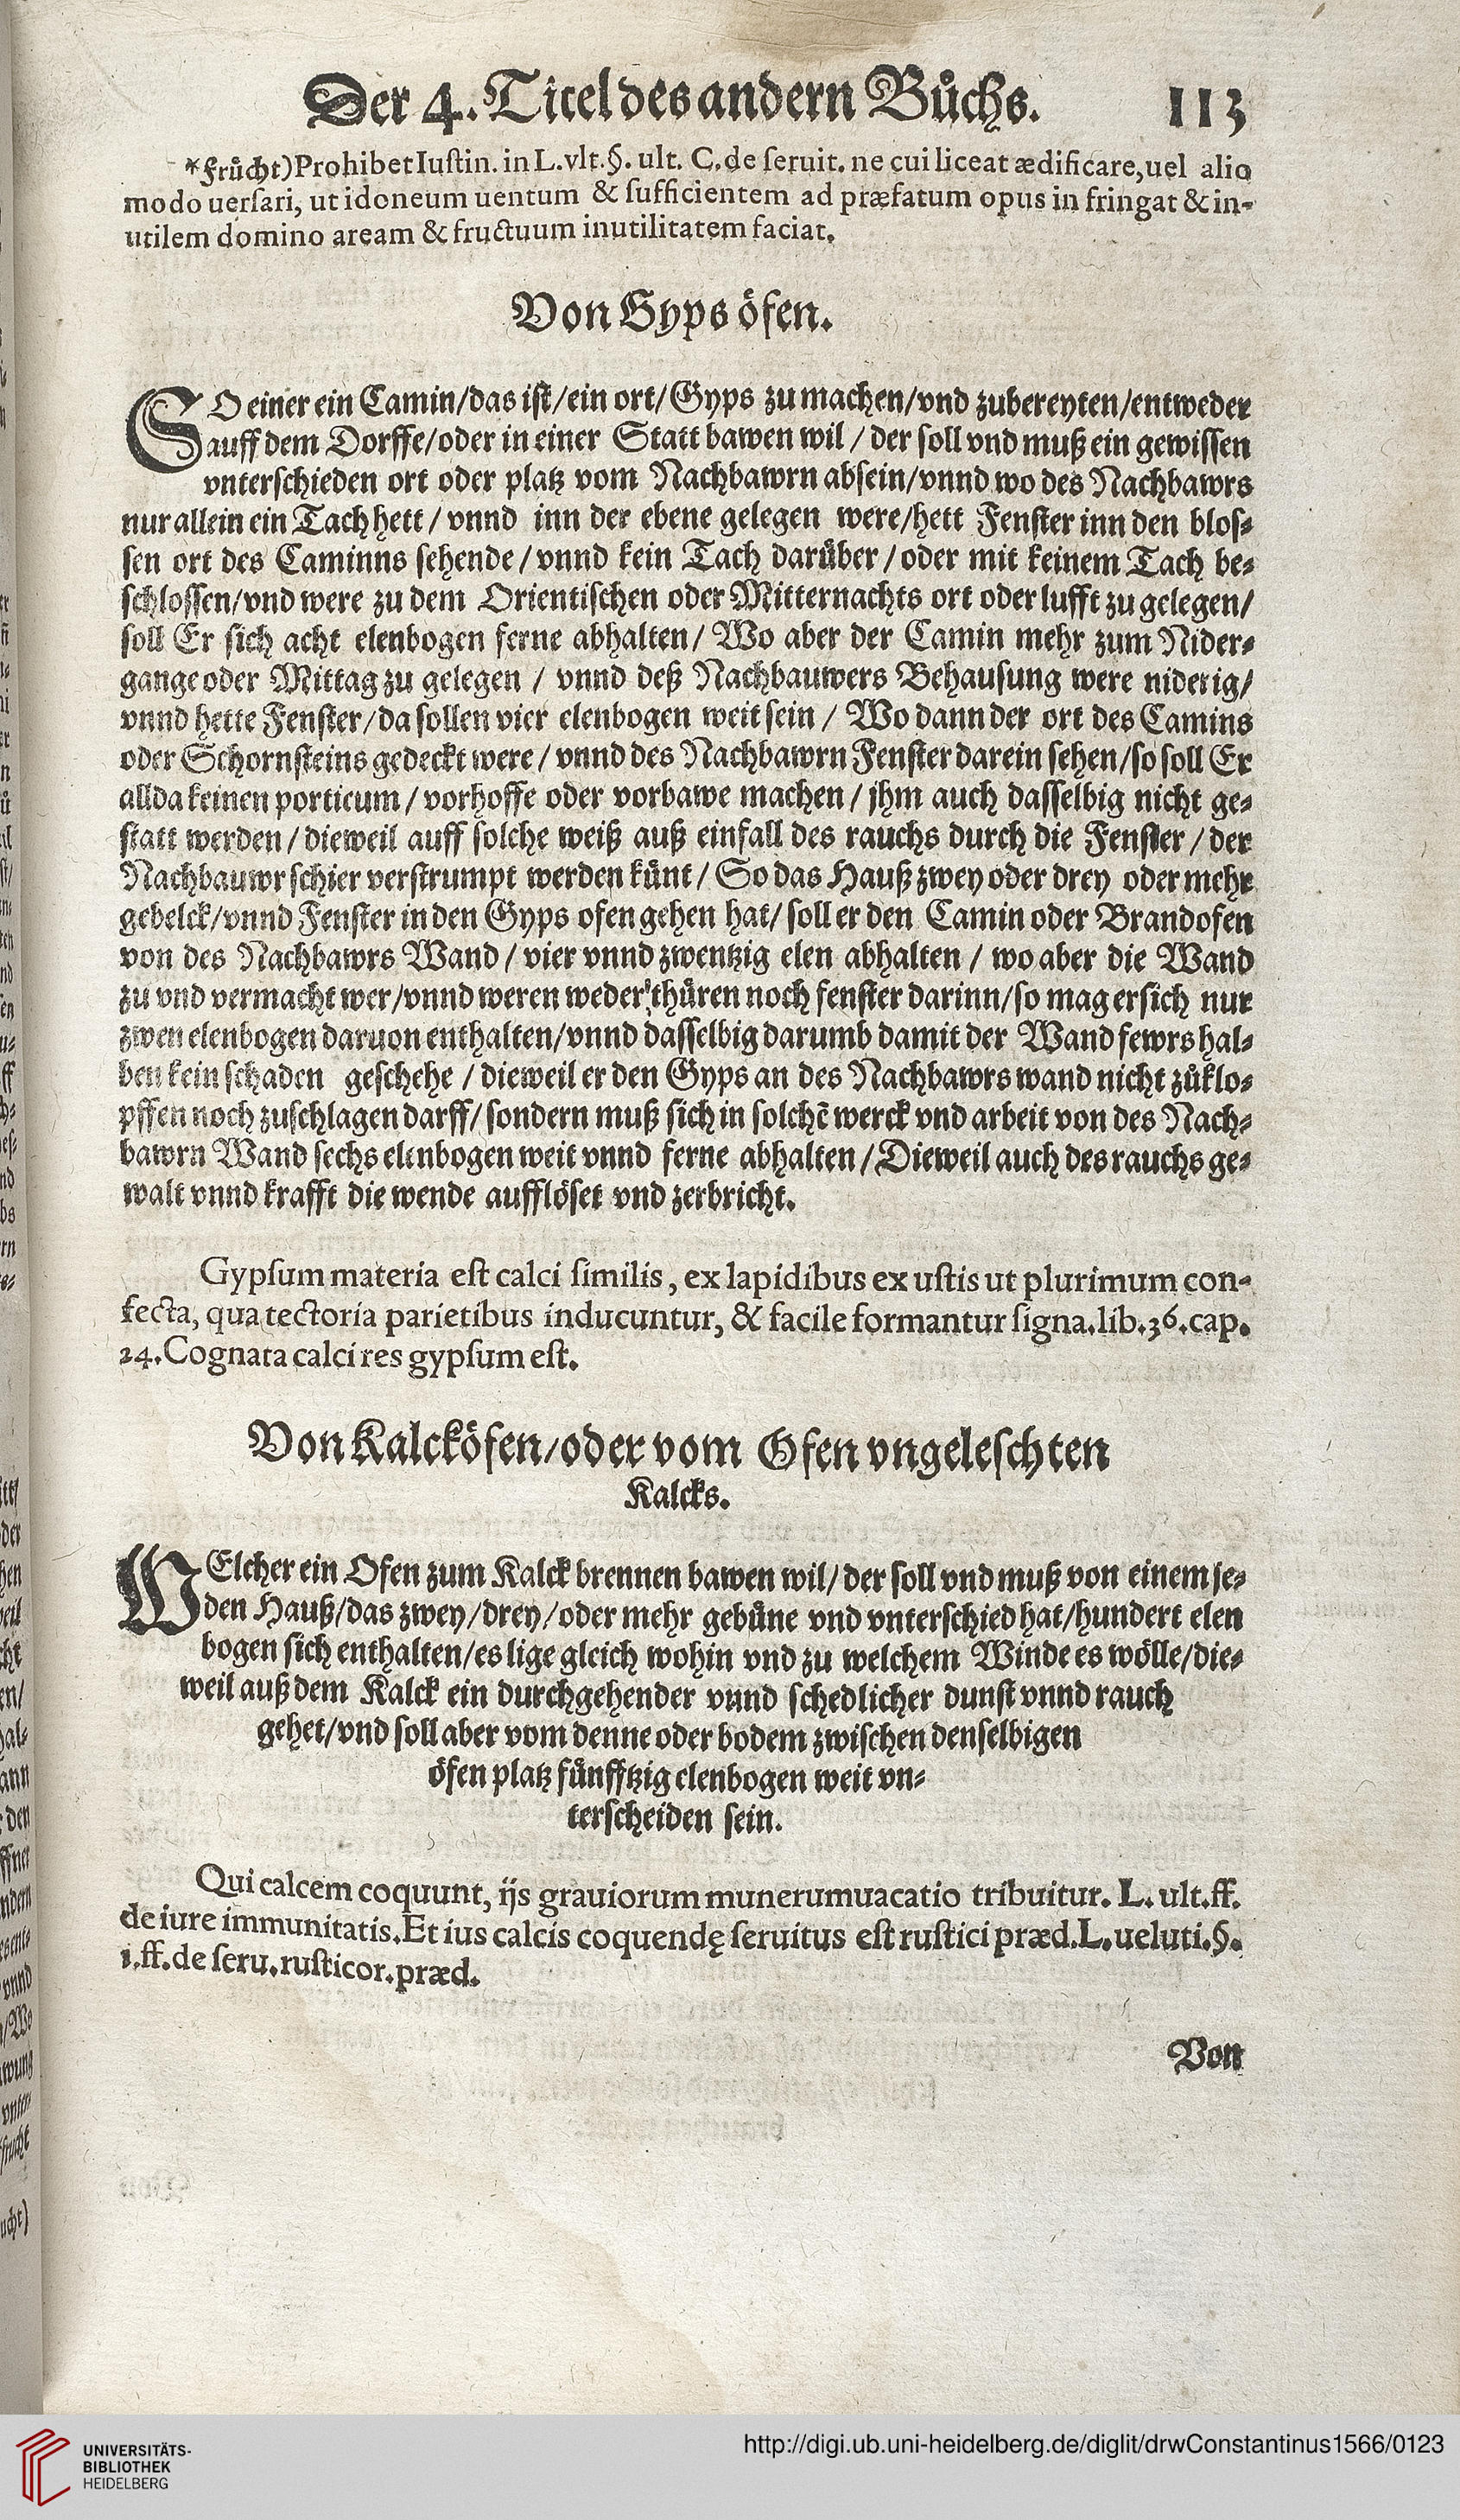 Der 4. Titel des andern Bůchs. 113
*Frůcht) Prohibet Iustin. in L. vlt. §. ult. C. de seruit. ne cui liceat ædificare, uel alio
modo uersari, ut idoneum uentum & sufficientem ad præfatum opus in fringat & in-
utilem domino aream & fructuum inutilitatem faciat.
Von Gyps öfen.
SO einer ein Camin/das ist/ein ort/Gyps zu machen/vnd zubereyten/entweder
auff dem Dorffe/oder in einer Statt bawen wil/der soll vnd muß ein gewissen
vnterschieden ort oder platz vom Nachbawrn absein/vnnd wo des Nachbawrs
nur allein ein Tach hett/vnnd inn der ebene gelegen were/hett Fenster inn den blos-
sen ort des Caminns sehende/vnnd kein Tach darůber/oder mit keinem Tach be-
schlossen/vnd were zu dem Orientischen oder Mitternachts ort oder lufft zu gelegen/
soll Er sich acht elenbogen ferne abhalten/Wo aber der Camin mehr zum Nider-
gange oder Mittag zu gelegen/vnnd deß Nachbauwers Behausung were niderig/
vnnd hette Fenster/da sollen vier elenbogen weit sein/Wo dann der ort des Camins
oder Schornsteins gedeckt were/vnnd des Nachbawrn Fenster darein sehen/so soll Er
allda keinen porticum/vorhoffe oder vorbawe machen/jhm auch dasselbig nicht ge-
statt werden/dieweil auff solche weiß auß einfall des rauchs durch die Fenster/der
Nachbauwr schier verstrumpt werden kůnt/So das Hauß zwey oder drey oder mehr
gebelck/vnnd Fenster in den Gyps ofen gehen hat/soll er den Camin oder Brandofen
von des Nachbawrs Wand/vier vnnd zwentzig elen abhalten/wo aber die Wand
zu vnd vermacht wer/vnnd weren weder thüren noch fenster darinn/so mag er sich nur
zwen elenbogen daruon enthalten/vnnd dasselbig darumb damit der Wand fewrs hal-
ben kein schaden geschehe/dieweil er den Gyps an des Nachbawrs wand nicht zůklo-
pffen noch zuschlagen darff/sondern muß sich in solchē werck vnd arbeit von des Nach-
bawrn Wand sechs elenbogen weit vnnd ferne abhalten/Dieweil auch des rauchs ge-
walt vnnd krafft die wende aufflöset vnd zerbricht.
Gypsum materia est calci similis, ex lapidibus ex ustis ut plurimum con-
fecta, qua tectoria parietibus inducuntur, & facile formantur signa. lib. 36. cap.
24. Cognata calci res gypsum est.
Von Kalcköfen/oder vom Ofen vngeleschten
Kalcks.
WElcher ein Ofen zum Kalck brennen bawen wil/der soll vnd muß von einem je-
den Hauß/das zwey/drey/oder mehr gebůne vnd vnterschied hat/hundert elen
bogen sich enthalten/es lige gleich wohin vnd zu welchem Winde es wölle/die-
weil auß dem Kalck ein durchgehender vnnd schedlicher dunst vnnd rauch
gehet/vnd soll aber vom denne oder bodem zwischen denselbigen
öfen platz fůnfftzig elenbogen weit vn-
terscheiden sein.
Qui calcem coquunt, ijs grauiorum munerum uacatio tribuitur. L. ult. ff.
de iure immunitatis. Et ius calcis coquendę seruitus est rustici præd. L. ueluti. §.
1. ff. de seru. rusticor. præd.
Von
UNIVERSITÄTS-
BIBLIOTHEK
HEIDELBERG
http://digi.ub.uni-heidelberg.de/diglit/drwConstantinus1566/0123